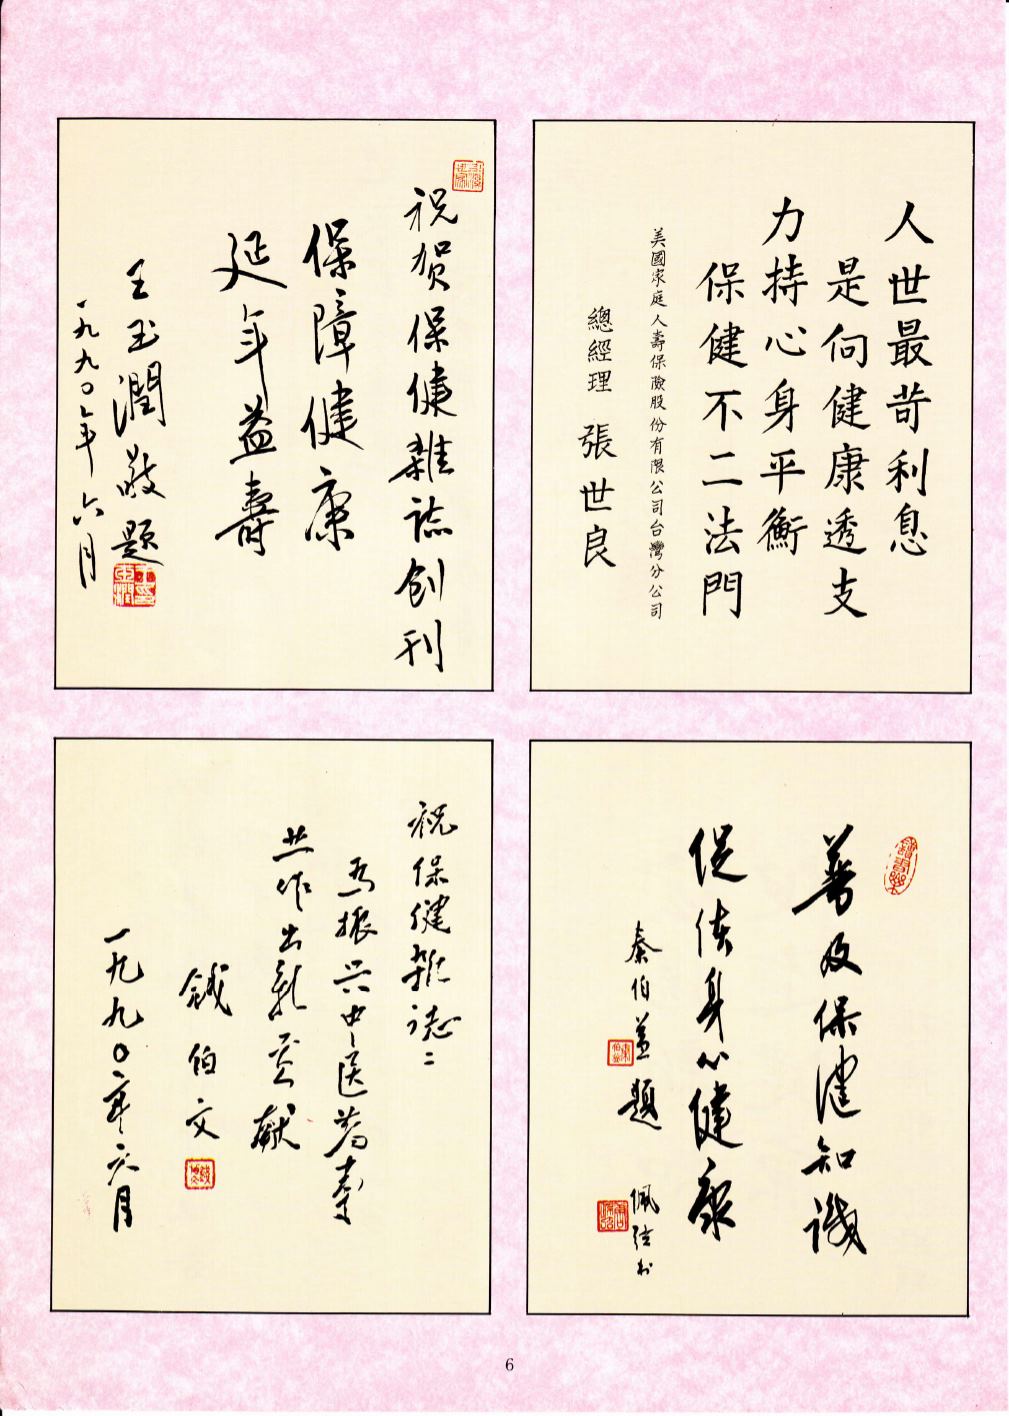 人世最苛利息
是向健康透支
力持心身平衡
保健不二法門
美國家庭人壽保險股份有限公司台灣分公司
總經理 張世良
祝贺保健雜誌创刊
保障健康
延年益壽
王玉潤敬题
一九九〇年六月
普及保健知識
促使身心健康
秦伯益題 佩弦书
祝保健雜誌:
为振兴中医药事
业作出新贡献
錢伯文
一九九〇年六月
6